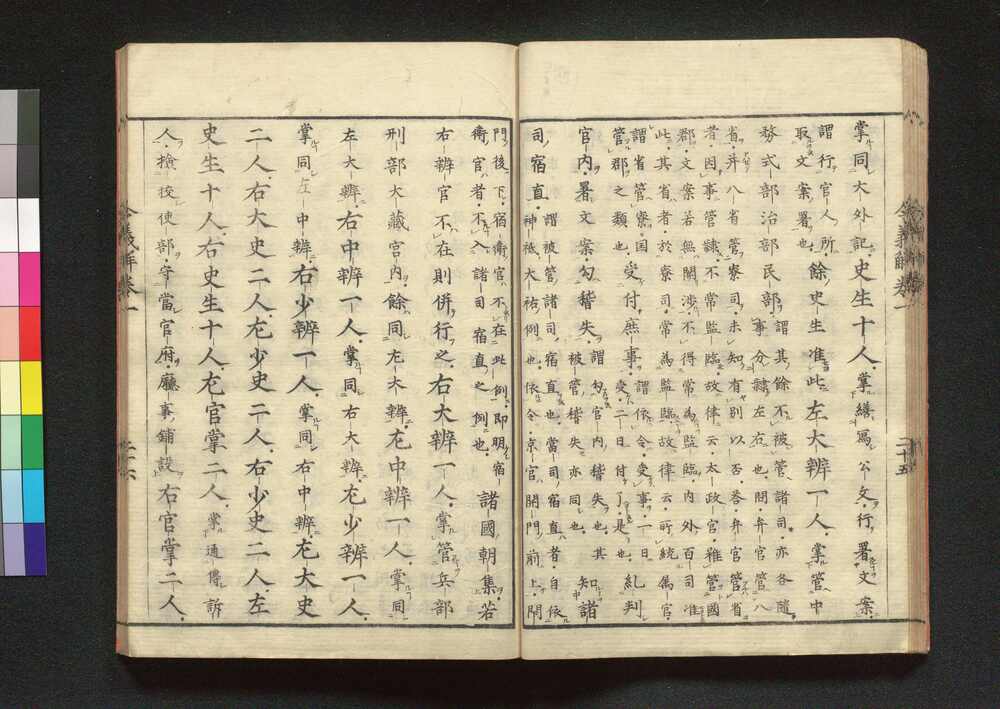 掌同大外記史生十人掌繕寫公文行署文案
謂行官人所
取文案署也
餘史生准此左大辨一人掌管中
務式部治部民部
謂其餘不被管諸司亦各隨
事分隸左右也問弁官管八
省并八省管寮司未知有別以否答弁官管省
者因事管隸不常監臨故律云太政官雖管國
郡文案若無關渉不得常為監臨内外百司准
此其省者於寮司常為監臨故律云所統屬官
謂省管寮國
管郡之類也
受付庶事
謂依令受事一日
受二日付了是也
糺判
官内署文案勾稽失
謂勾官内稽失也其
被管稽失亦同也
知諸
司宿直
謂被管諸司宿直也當司宿直者自依
神祇大祐例也依令京官開門前上閇
令義解卷一
二十五
門後下宿衛官不在此例即明宿
衛官者不入諸司宿直之例也
諸國朝集若
右辨官不在則併行之右大辨一人掌管兵部
刑部大藏宮内餘同左大辨左中辨一人掌同
左大辨右中辨一人掌同右大辨左少辨一人
掌同左中辨右少辨一人掌同右中辨左大史
二人右大史二人左少史二人右少史二人左
史生十人右史生十人左官掌二人掌通傳訴
人檢校使部守當官府廳事鋪設右官掌二人
令義解卷一
二十六